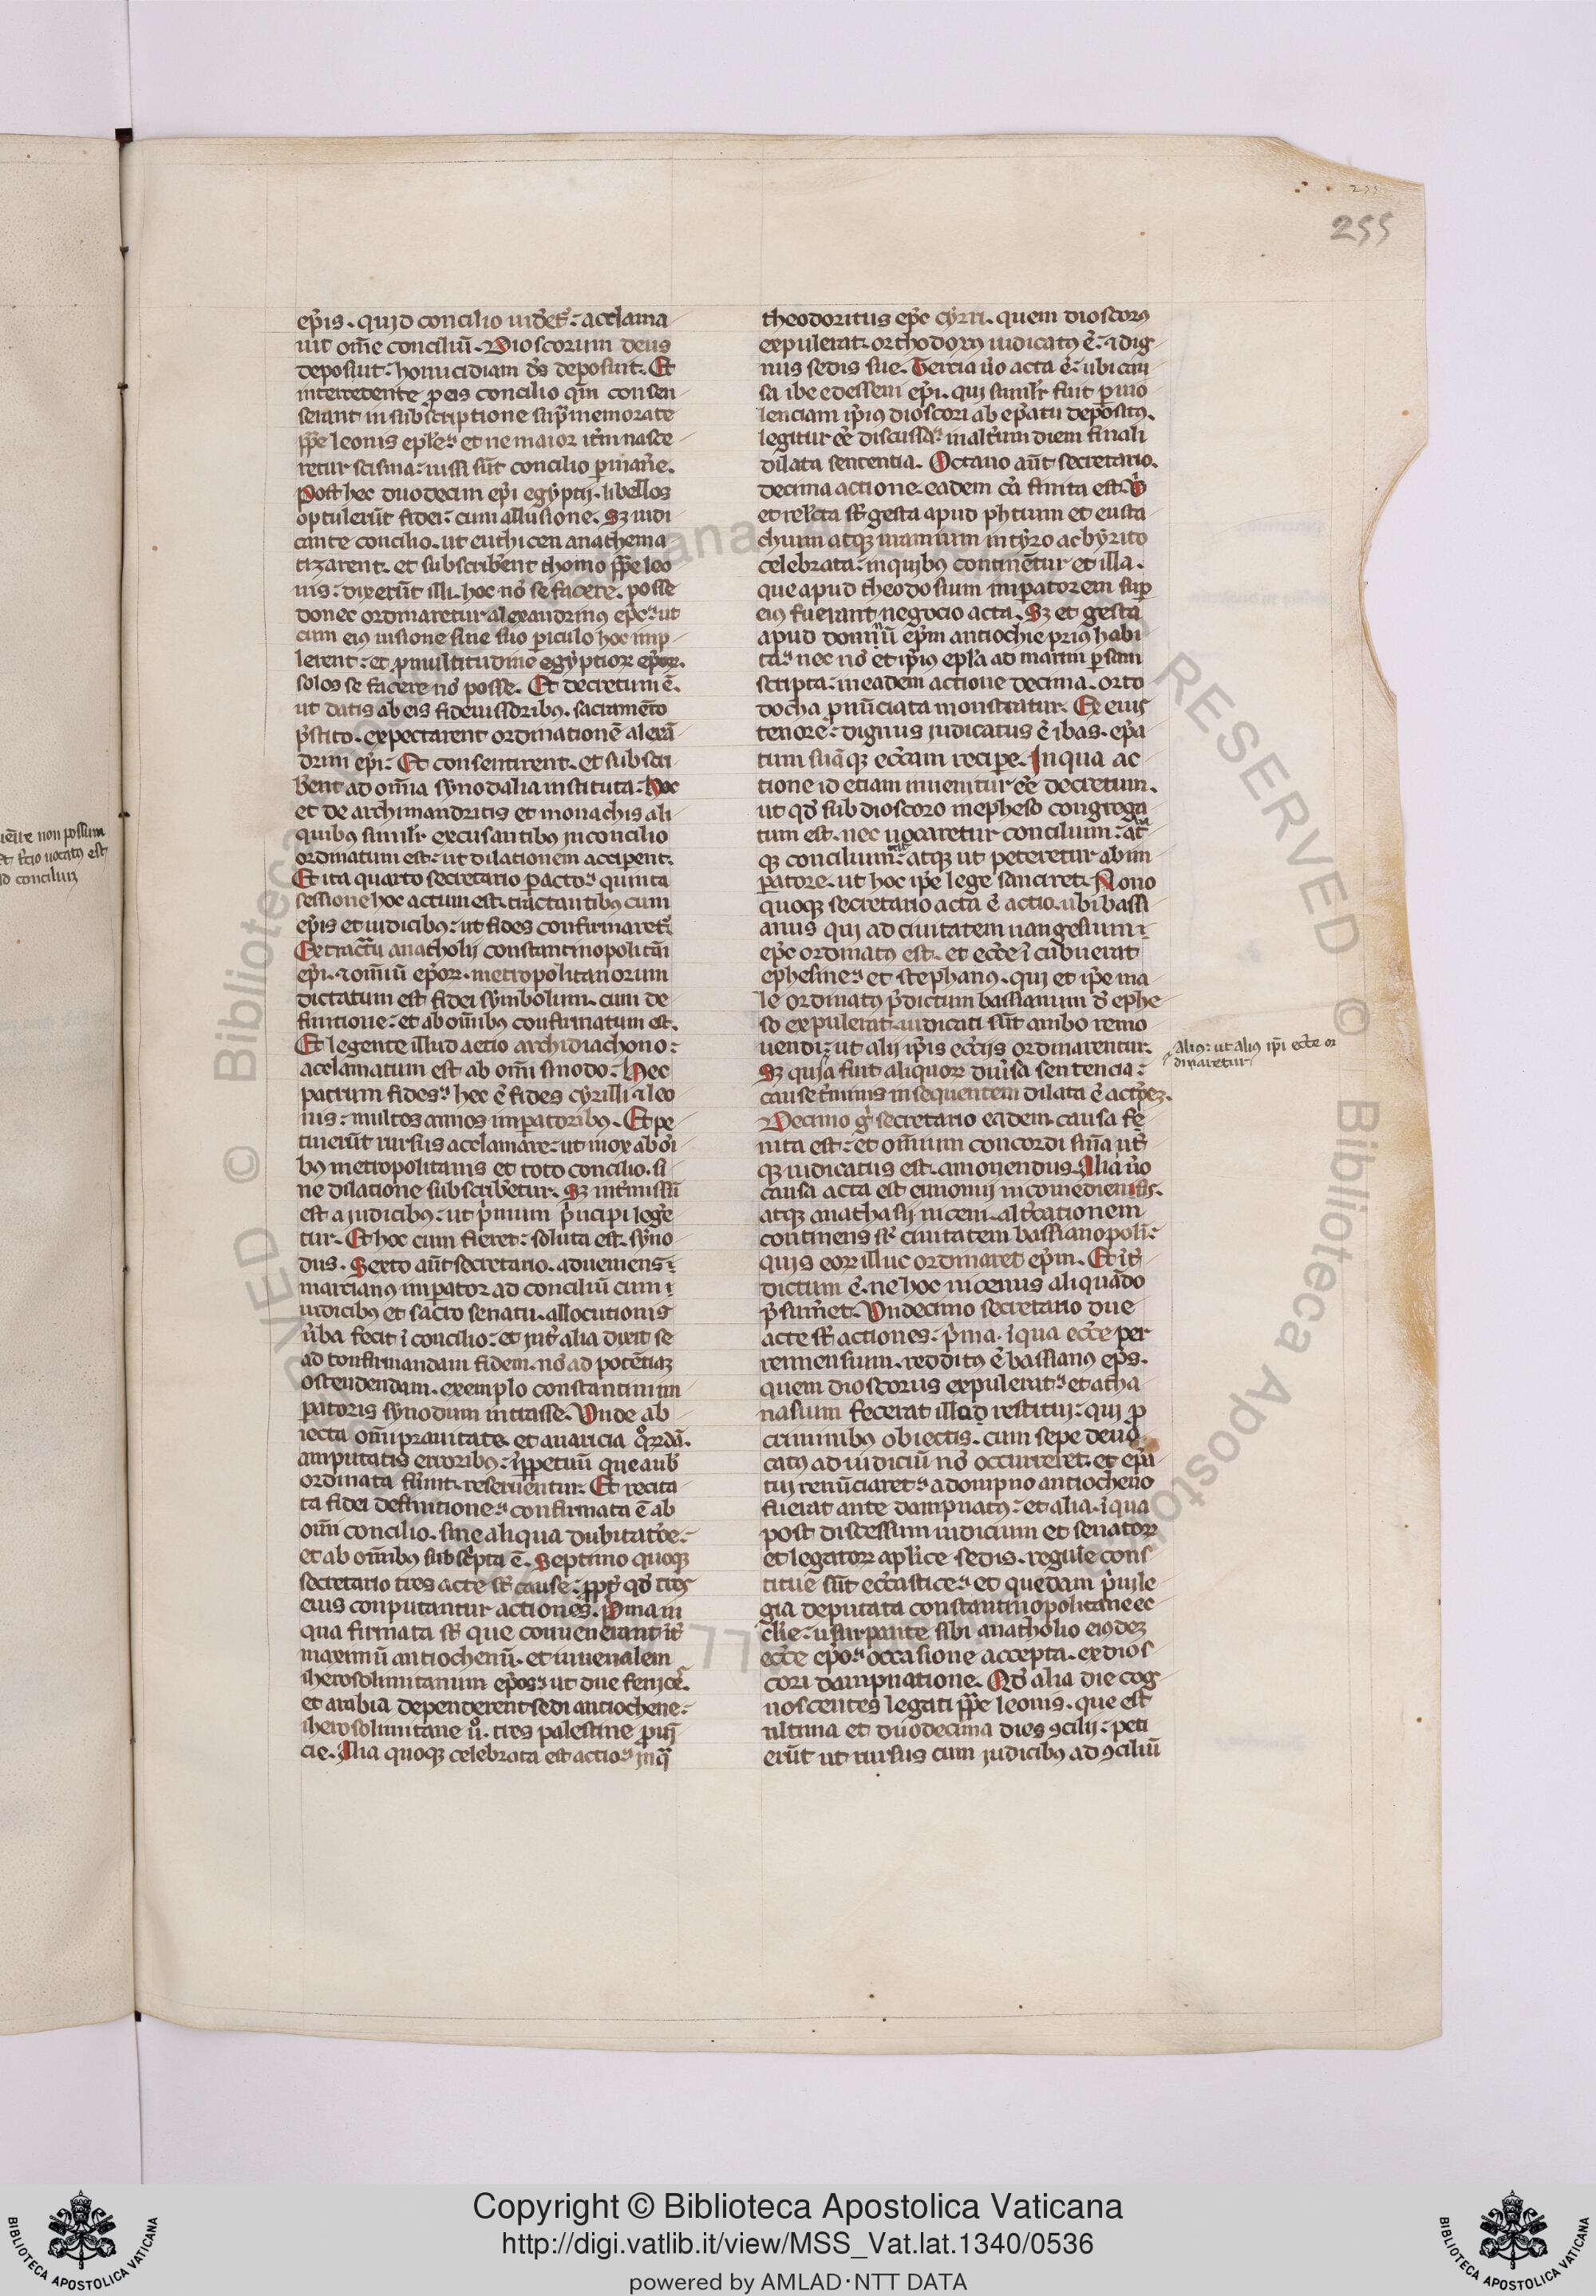 255
ep̄is. quid concilio uidet᷑: acclama
uit om̄e conciliū. Dioscorum deus
deposuit: homicidiam d̄s deposuit. Et
intercedente p eis concilio qm̄ consen
serant in subscriptione sup̃ memorate
pp̄e leonis epl̄e: et ne maior itm̄ nasce
retur scisma: iussi sūt concilio pmane.
Post hec duodecim ep̄i egyptij. libellos
optulerūt fidei: cum allusione. Sz iudi
cante concilio. ut euthicen anathema
tizarent. et subscriberent thomo pp̄e leo
nis: dixerūt illi. hoc nō se facere. posse
donec ordinaretur alexandrinus ep̄c: ut
cum eius iussione sine suo periculo hoc imp
lerent: et p multitudine egyptioꝝ ep̄oꝝ.
solos se facere nō posse. Et decretum ē.
ut datis ab eis fideiussoribus. sacramēto
p̄stito. expectarent ordinationē alexā
drini ep̄i: Et consentirent. et subscri
bent ad om̄ia synodalia instituta: Hoc
et de archimandritis et monachis ali
quibus simil'r excusantibus in concilio
ordinatum est: ut dilationem acciperent.
Et ita quarto secretario pacto: quinta
sessione hoc actum est. tractantibus cum
ep̄is et iudicibus: ut fides confirmaret᷑.
Ex tractatu anatholij constantinopolitāi
ep̄i. ⁊ om̄iū ep̄oꝝ. metropolitanorum
dictatum est fidei symbolum. cum de
finitione: et ab om̄ibus confirmatum est.
Et legente illud aetio archidiachono:
acclamatum est ab om̄i sinodo: Hec
patrum fides: hec ē fides cyrilli ⁊ leo
nis: multos annos imperatoribus. Et pe
tiuerūt rursus acclamare: ut mox ab oī
bus metropolitanis et toto concilio. si
ne dilatione subscriberetur. Sz intmissū
est a iudicibus: ut p̄mium p̄ncipi lege
tur. Et hoc cum fieret: soluta est. syno
dus. Sexto aūt secretario. adueniens
marcianus imperator ad conciliū cum
iudicibus et sacro senatu. allocutionis
ūba fecit ī concilio: et int̄ alia dixit se
ad confirmandam fidem. nō ad potētiaꝫ
ostendendam. exemplo constantini im
peratoris synodum intrasse. Unde ab
iecta om̄i prauitate. et auaricia q̄rūdā.
amputatis erroribus: ī ppetuū que a ub̄
ordinata sunt. reseruentur. Et recita
ta fidei definitione: confirmata ē ab
om̄i concilio. sine aliqua dubitatōe:
et ab om̄ibus subscripta ē. Septimo quoqꝫ
secretario tres acte sūt cause: ppt̄ qd̄ tres
eius conputantur actiones. Prima in
qua firmata sūt que conuenerant int̄
maximū antiochenū. et iuuenalem
iherosolimitanum ep̄os: ut due fenices.
et arabia dependerent sedi antiochene:
iherosolimitane ū. tres palestine puī
cie. Alia quoqꝫ celebrata est actio: in q̄
theodoritus ep̄c cyrri. quem dioscorus
expulerat. orthodoxus iudicatus ē: ⁊ dig
nus sedis sue. Tercia ūo acta ē: ubi cau
sa ibe edesseni ep̄i. qui simil'r fuit p uio
lenciam ip̄ius dioscori ab ep̄atu depositus.
legitur ēē discussa: in alterum diem finali
dilata sentencia. Octauo aūt secretario.
decima actione. eadem cā finita est. Vbi
et relecta sūt gesta apud photium et eusta
chium atqꝫ maniuum in tyro ac byrito
celebrata: in quibus continētur et illa.
que apud theodosium imperatorem sup
eius fuerant negocio acta. Sz et gesta
apud domnū ep̄m antiochie prius habi
ta: nec nō et ip̄ius epl̄a ad marim persam
scripta: in eadem actione decima. orto
docha pnūciata monstratur. Ex eius
tenore: dignus iudicatus ē ibas. ep̄a
tum suāqꝫ ecc̄am recipe. In qua ac
tione id etiam inuenitur ēē decretum.
ut qd̄ sub dioscoro in epheso congrega
tum est. nec uocaretur concilium:
qꝫ concilium: atqꝫ ut peteretur ab im
peratore. ut hoc ip̄e lege sanciret. Nono
quoqꝫ secretario acta ē actio. ubi bassi
anus qui ad ciuitatem uangesium
ep̄c ordinatus est. et ecc̄e ī cubuerat
ephesine: et stephanus. qui et ip̄e ma
le ordinatus p̄dictum bassianum d̄ ephe
so expulerat. iudicati sūt ambo remo
uendi: ut alij ip̄is ecc̄ijs ordinarentur.
Sz quia fuit aliquoꝝ diuisa sentencia:
cause t̄minus in sequentem dilata ē actōeꝫ.
Decimo g̊ secretario eadem causa fi
nita est: et om̄ium concordi sn̄ia ut̄
qꝫ iudicatus est. amouendus. Alia ūo
causa acta est eunomij nicomediensis.
atqꝫ anathasij niceni. altercationem
continens sup̄ ciuitatem bassianopoli:
quis eoꝝ illuc ordinaret ep̄m. Et int̄
dictum ē. ne hoc nicenus aliquādo
p̄sumeret. Undecimo secretario due
acte sūt actiones: p̄ma. ī qua ecc̄e per
rennensium. redditus ē bassianus ep̄s.
quem dioscorus expulerat: et atha
nasium fecerat illuc restitui: qui p
criminibus obiectis. cum sepe deuo
catus ad iudiciū nō occurreret. et ep̄a
tui renūciaret: a dompno antiocheno
fuerat ante dampnatus: et alia. ī qua
post discessum iudicium et senatoꝝ
et legatoꝝ aplice sedis. regule cons
titute sūt ecc̄astice: et quedam p̄uile
gia deputata constantinopolitane ec
clie: usurpante sibi anatholio eiusdeꝫ
ecc̄e ep̄o: occasione accepta. ex dios
cori dampnatione. Qd̄ alia die cog
noscentes legati pp̄e leonis. que est
ultima et duodecima dies ꝯcilij: peti
erūt ut rursus cum iudicibus ad ꝯciliū
Alius: ut alius ip̄i ecc̄e or
dinaretur
non possum
uocatus est
ad concilium
Copyright © Biblioteca Apostolica Vaticana
http://digi.vatlib.it/view/MSS_Vat.lat.1340/0536
powered by AMLAD·NTT DATA
BIBLIOTECA APOSTOLICA VATICANA
BIBLIOTECA APOSTOLICA VATICANA